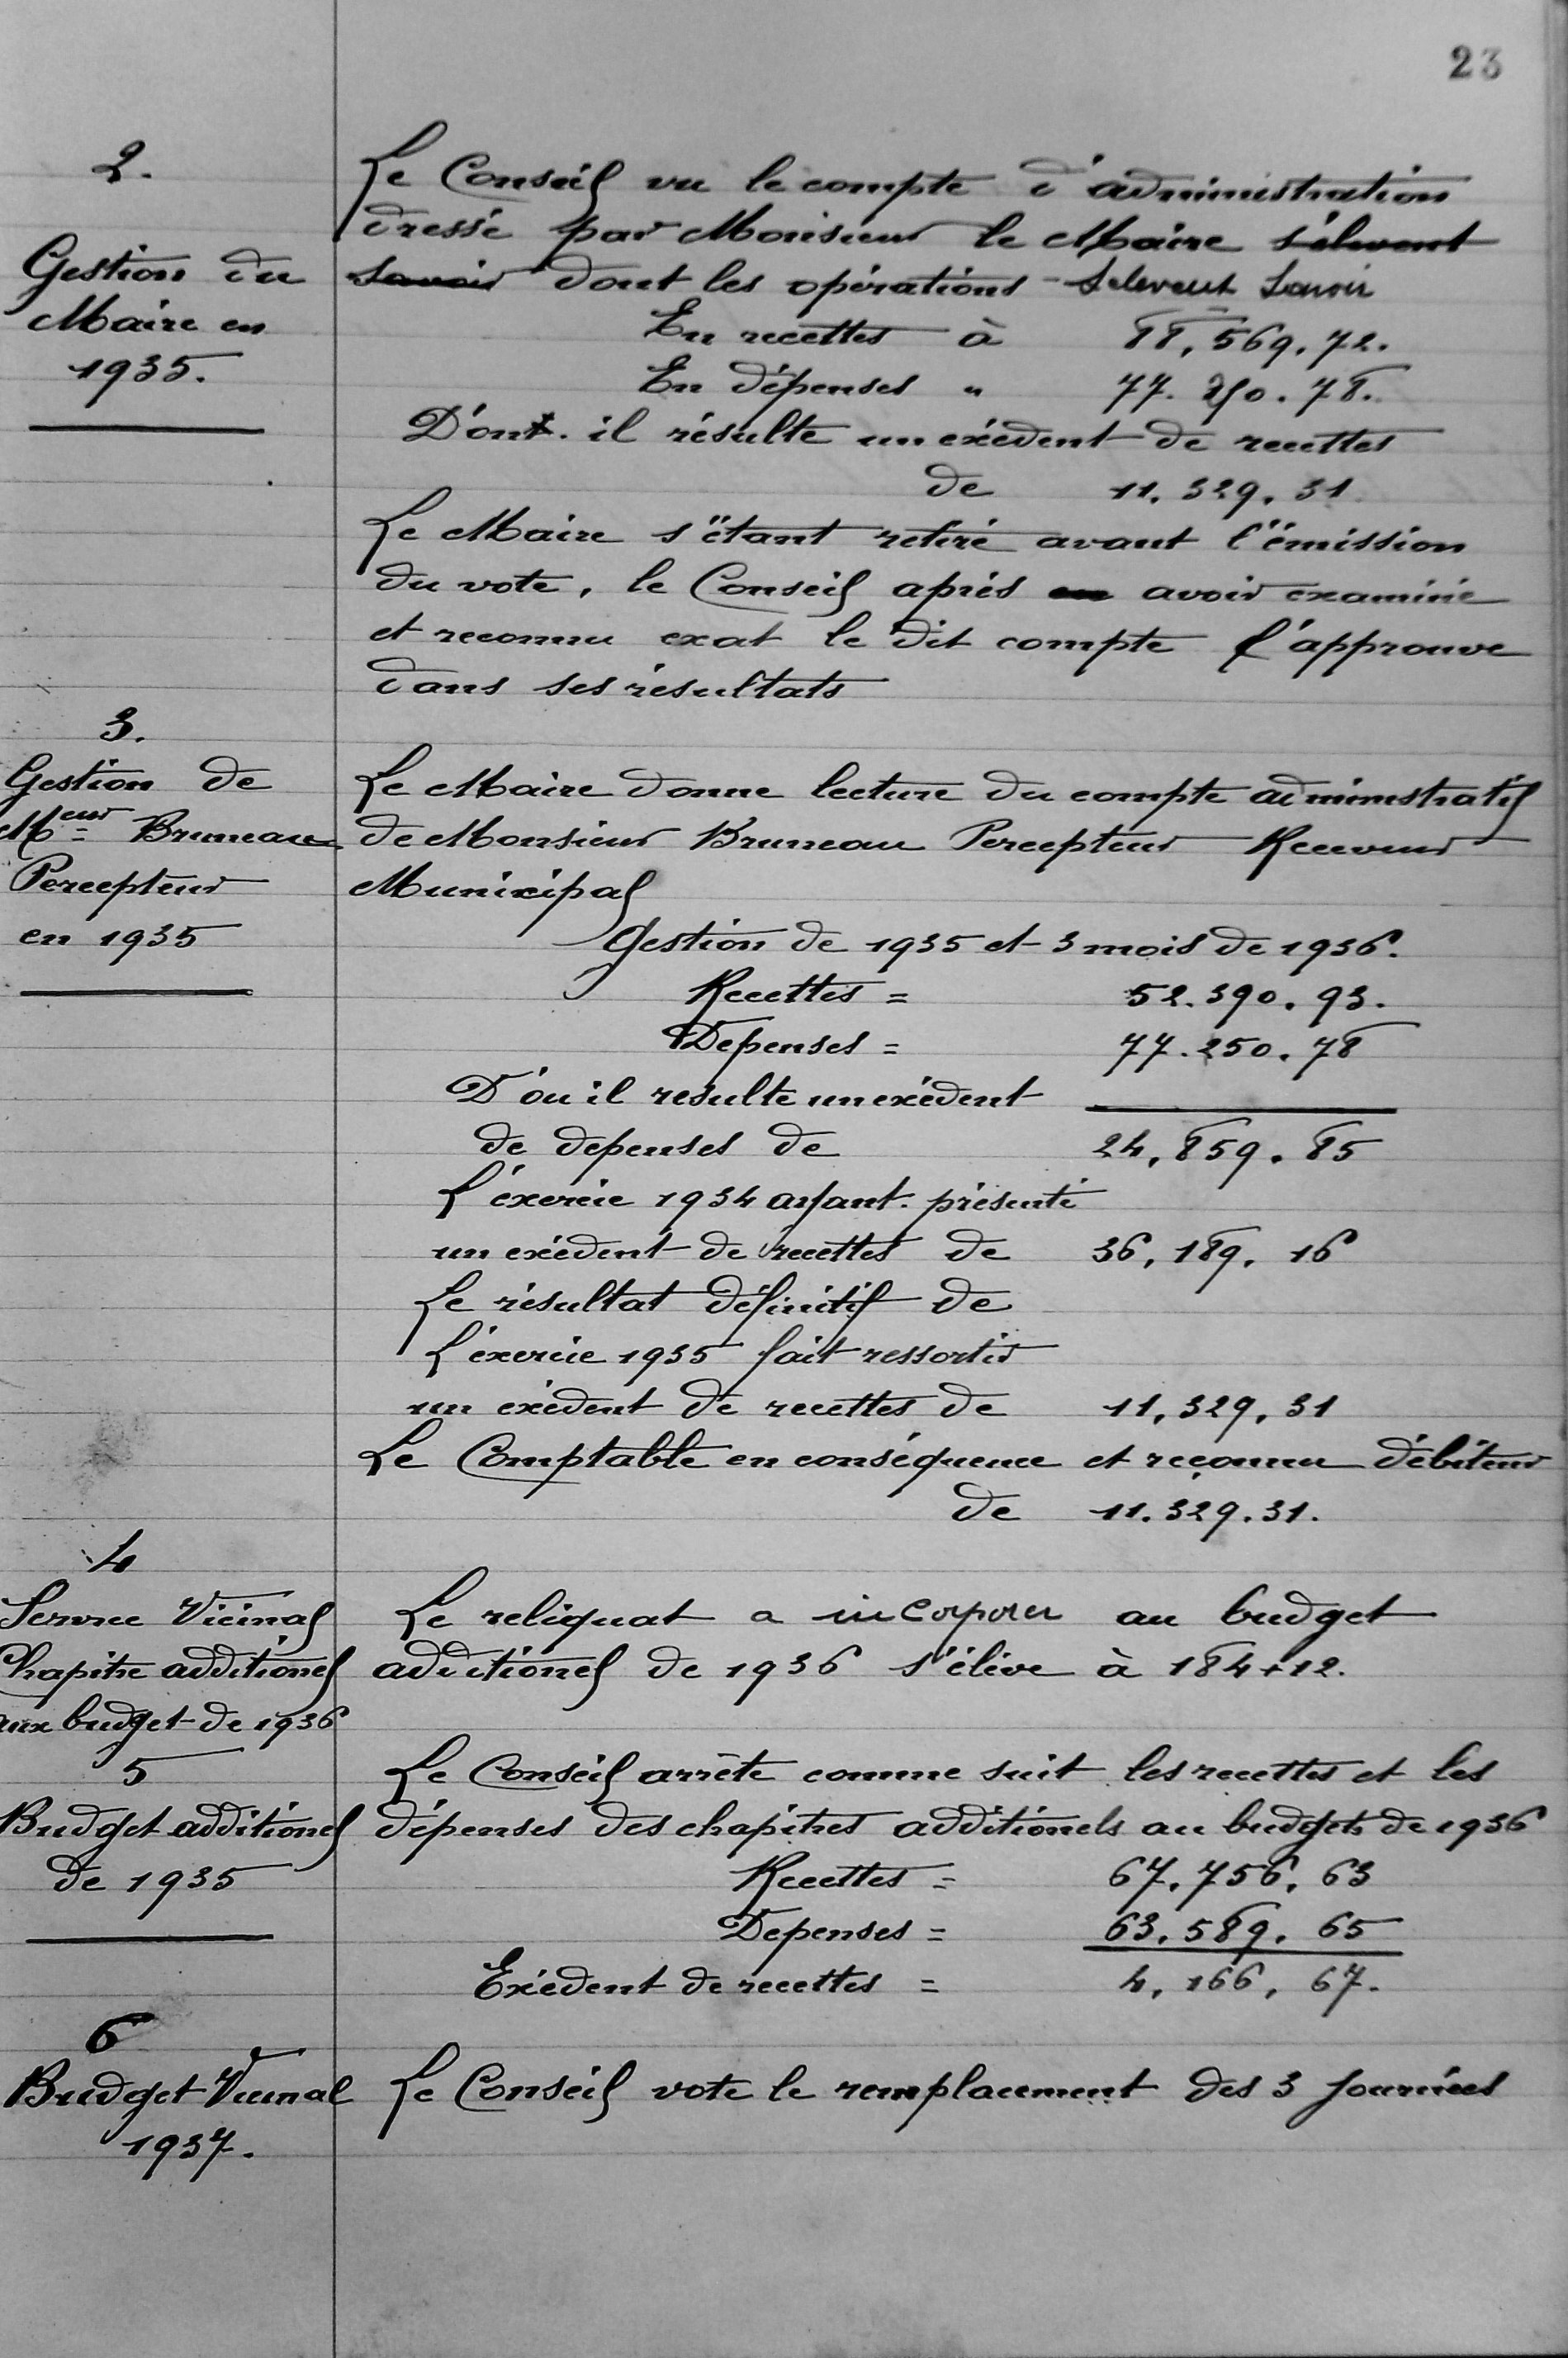 23
2.
Gestion du
Maire en
1935.
Le Conseil vu le compte d'administration
dressé par Monsieur le Maire s'élèvent
savoir dont les opérations selevent savoir
En recettes à 88,569.72.
En dépenses " 77.250.78.
D'ont. il résulte un exédent de recettes
de 11.329.31
Le Maire s'étant retiré avant l'émission
du vote, le Conseil après en avoir examiné
et reconnu exat le dit compte l'approuve
dans ses résultats
3.
Gestion de
Meur Bruneau
Percepteur
en 1935
Le Maire donne lecture du compte administratif
de Monsieur Bruneau Percepteur Receveur
Municipal
Gestion de 1935 et 3 mois de 1936.
Recettes = 52.390.93.
Depenses = 77.250.78
D'ou il resulte un exédent
de depenses de 24,859.85
L'éxercie 1934 ayant présenté
un exédent de recettes de 36,189.16
Le résultat définitif de
L'éxercie 1935 fait ressortir
un exédent de recettes de 11,329,31
Le Comptable en conséquence et reçonnu débiteur
de 11.329.31.
4
Service Vicinal
Chapitre additionel
aux budget de 1936
Le reliquat a incorporer au budget
additionel de 1936 s'élève à 184+12.
5
Budget additionel
de 1935
Le Conseil arrête comme suit les recettes et les
dépenses des chapitres additionels au budgets de 1936
Recettes = 67.756.63
Depenses = 63.589.65
Exédent de recettes = 4,166,67.
6
Budget Vicinal
1937.
Le Conseil vote le remplacement des 3 journées